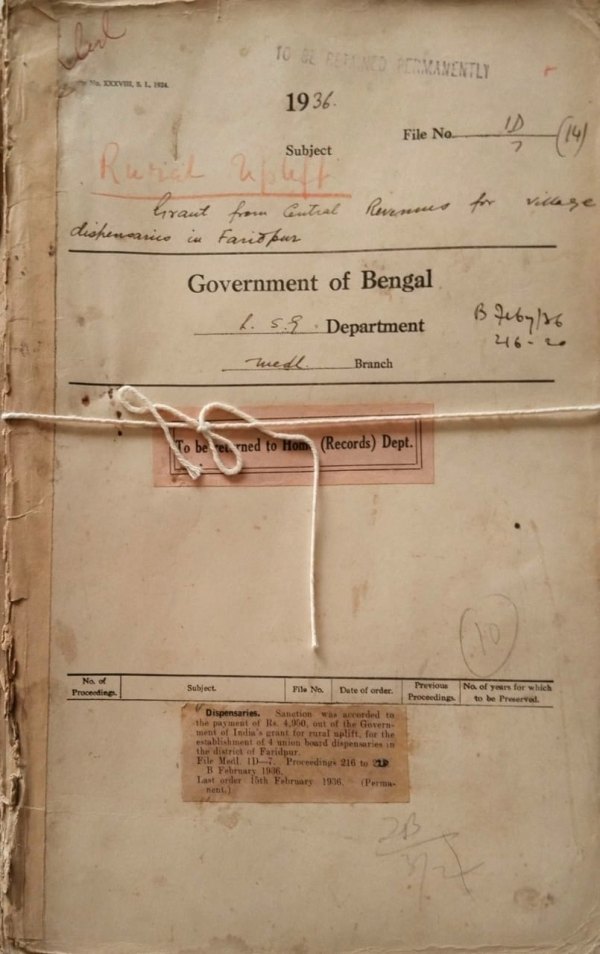 TO BE RETAINED PERMANENTLY
No. XXXVIII, S. I., 1924.
1936.
File No. 1D/7 (14)
Subject
Rural Uplift
Grant from Central Revenues for village
dispensaries in Faridpur
Government of Bengal
L. S. G. Department
B Feby/36
216-20
Medl. Branch
To be returned to Home (Records) Dept.
10
No. of Proceedings.
Subject.
File No.
Date of order.
Previous Proceedings.
No. of years for which to be Preserved.
Dispensaries. Sanction was accorded to
the payment of Rs. 4,950, out of the Govern-
ment of India's grant for rural uplift, for the
establishment of 4 union board dispensaries in
the district of Faridpur.
File Medl. 1D—7. Proceedings 216 to
B February 1936.
Last order 15th February 1936. (Perma-
nent.)